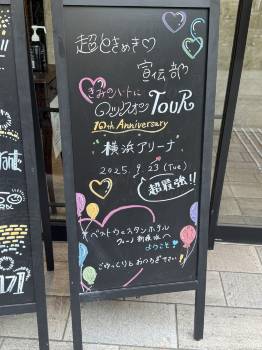 超ときめき♡
宣伝部
きみのハートに
ロックオン TOUR
10th Anniversary
横浜アリーナ
2025.9.23(Tue)
超最強!!
ベストウェスタンホテル
フィーノ新横浜へ
ようこそ
ごゆっくりとおつろぎ下さい